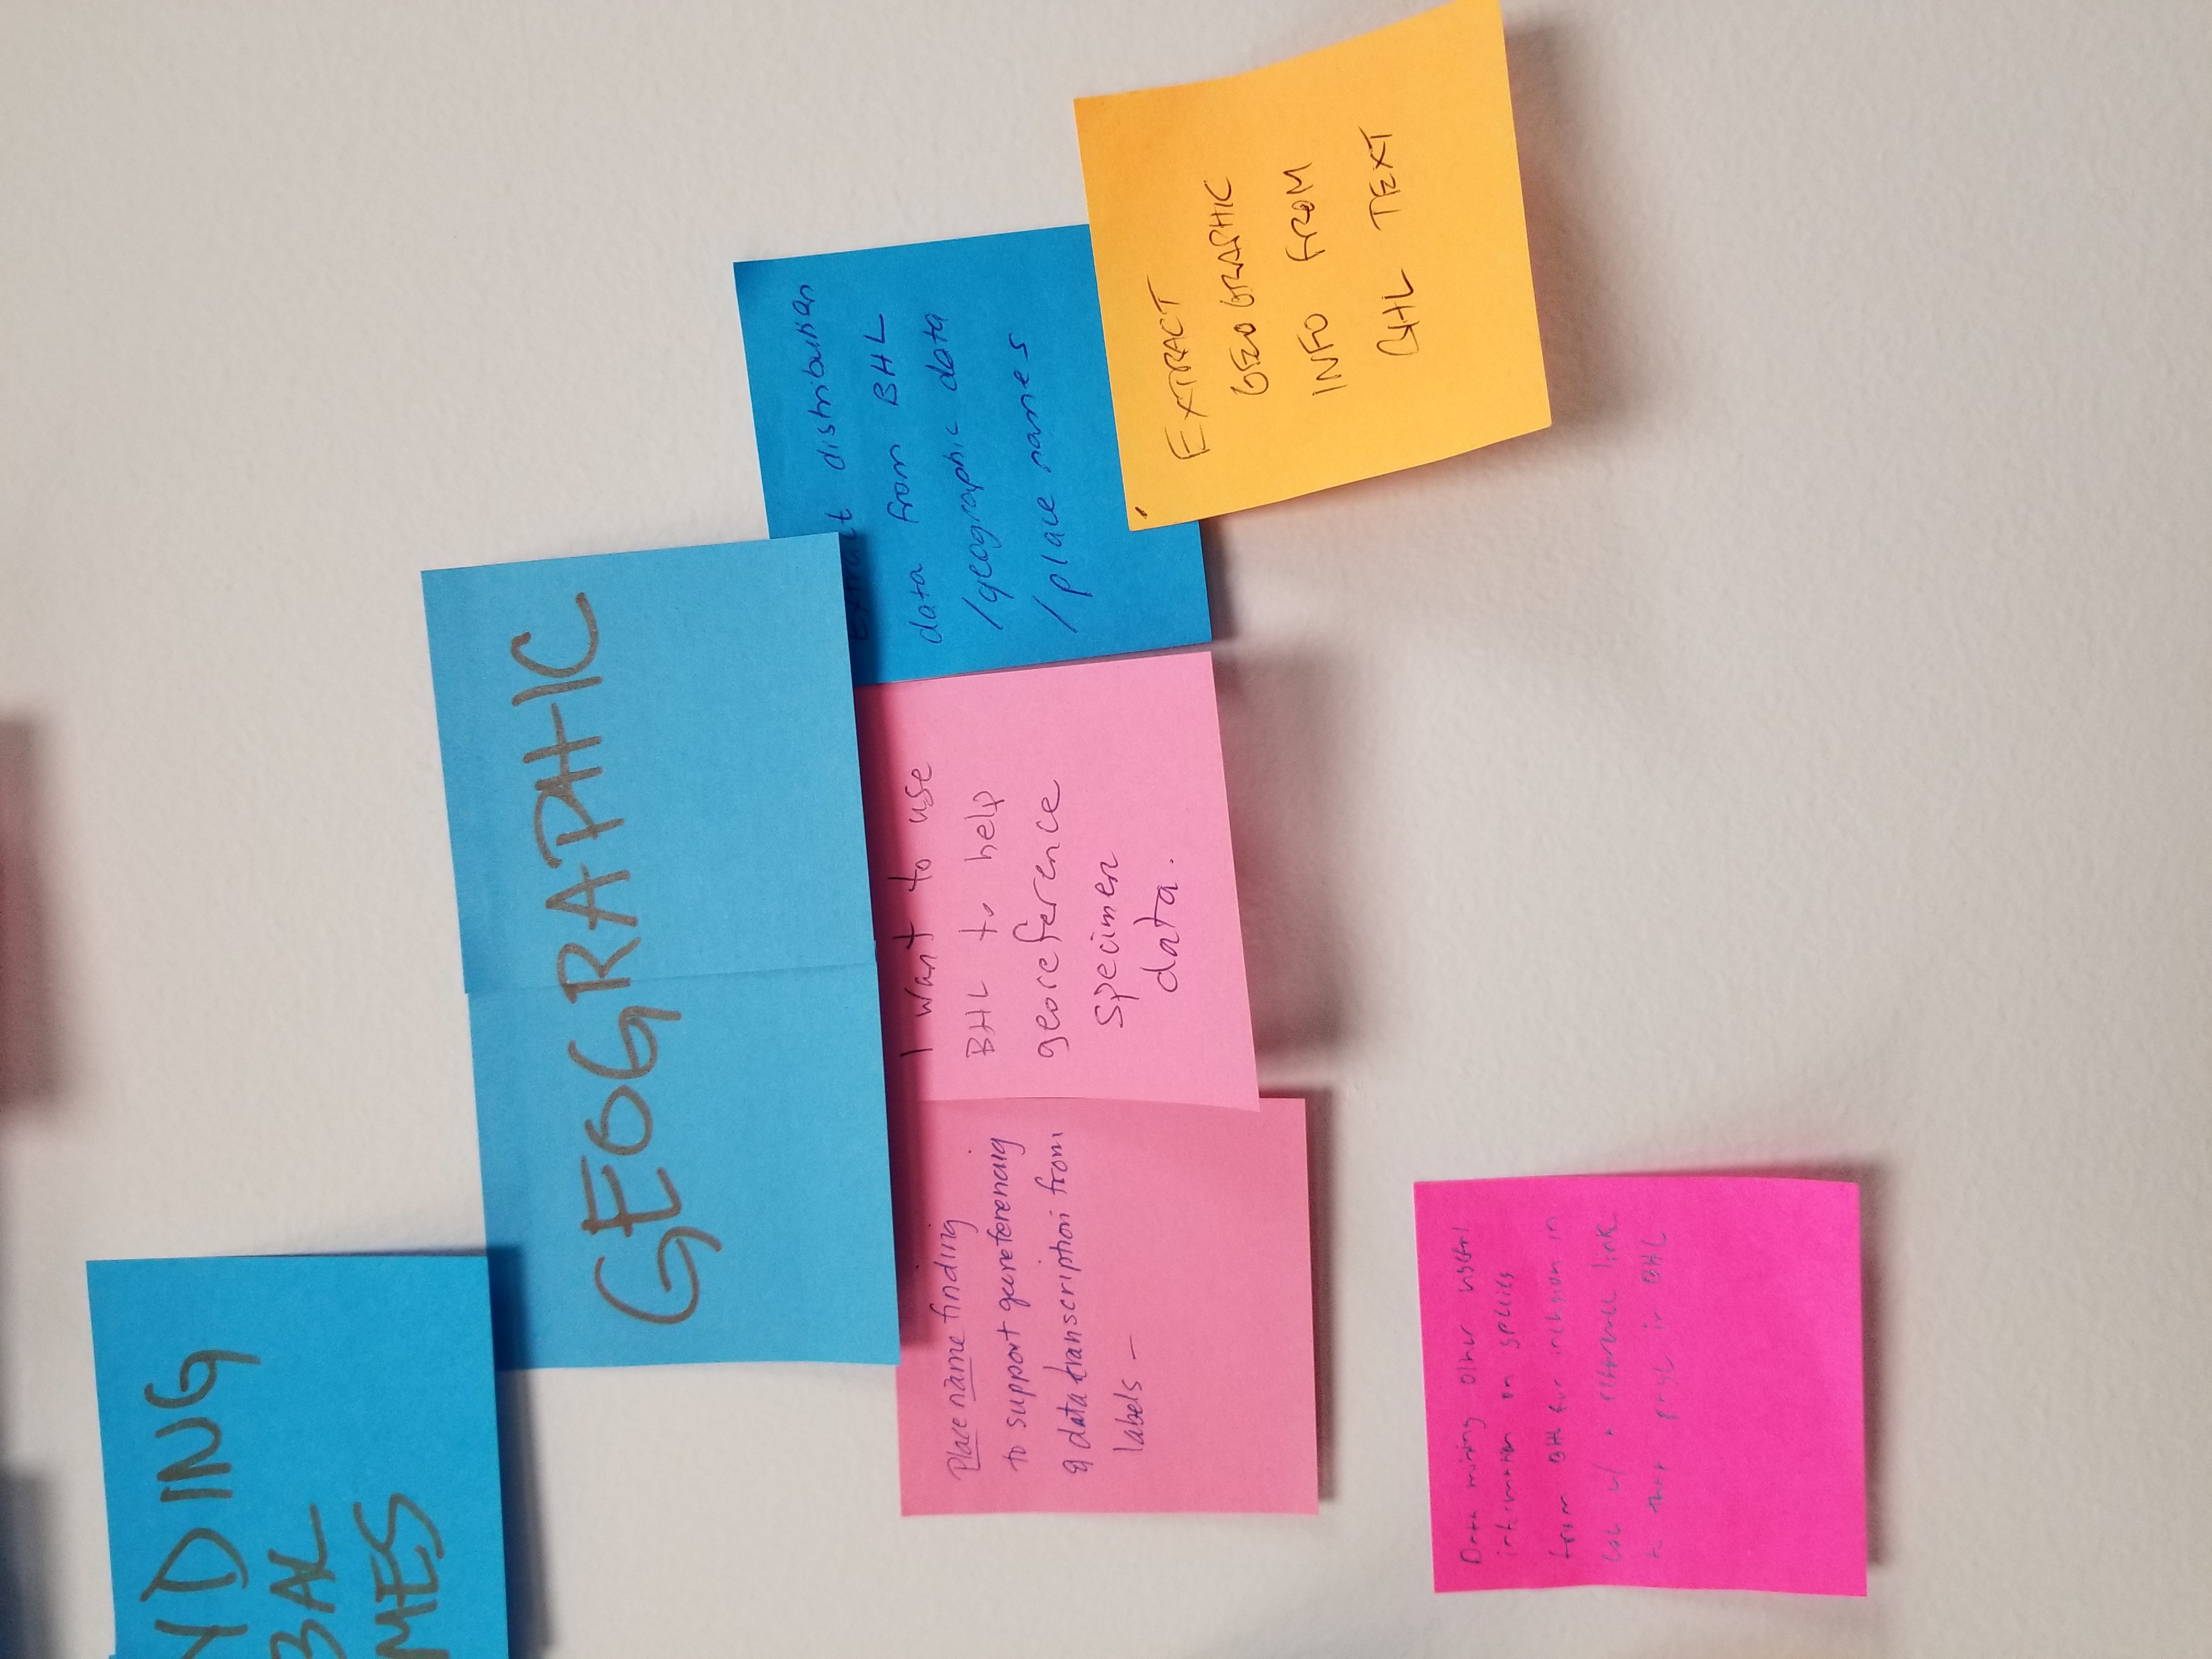 YDING
BAL
MES
GEOGRAPHIC
Place name finding
to support georeferencing
& data transcription from
labels —
I want to use
BHL to help
georeference
specimen
data.
Extract distribution
data from BHL
/geographic data
/place names
EXTRACT
GEOGRAPHIC
INFO FROM
BHL TEXT
Data mining other useful
information on species
from BHL for inclusion in
w/ a reference link
to that page in BHL